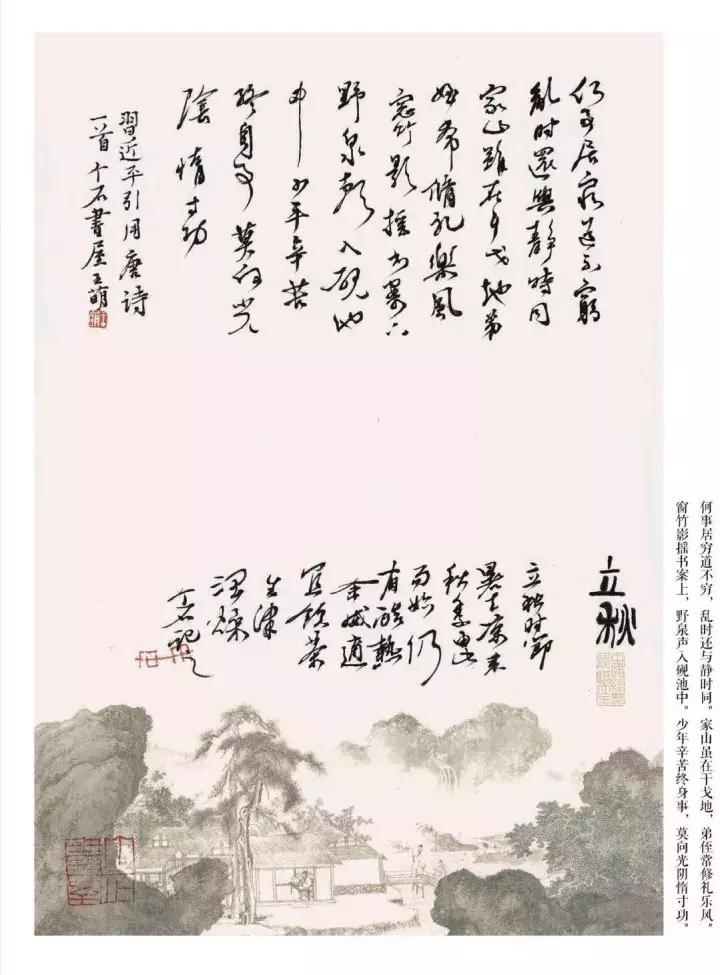 何事居窮道不窮
亂时還與靜時同
家山雖在干戈地弟
姪常脩礼樂風
窓竹影摇书案上
野泉声入砚池
中少年辛苦
终身事莫向光
陰惰寸功
習近平引用唐诗
一首十石書屋王萌
立秋
立秋时節
暑去凉来
秋季
而始仍
有酷熱
余威適
宜饮茶
生津
润燥
何事居穷道不穷，乱时还与静时同。家山虽在干戈地，弟侄常修礼乐风。
窗竹影摇书案上，野泉声入砚池中。少年辛苦终身事，莫向光阴惰寸功。